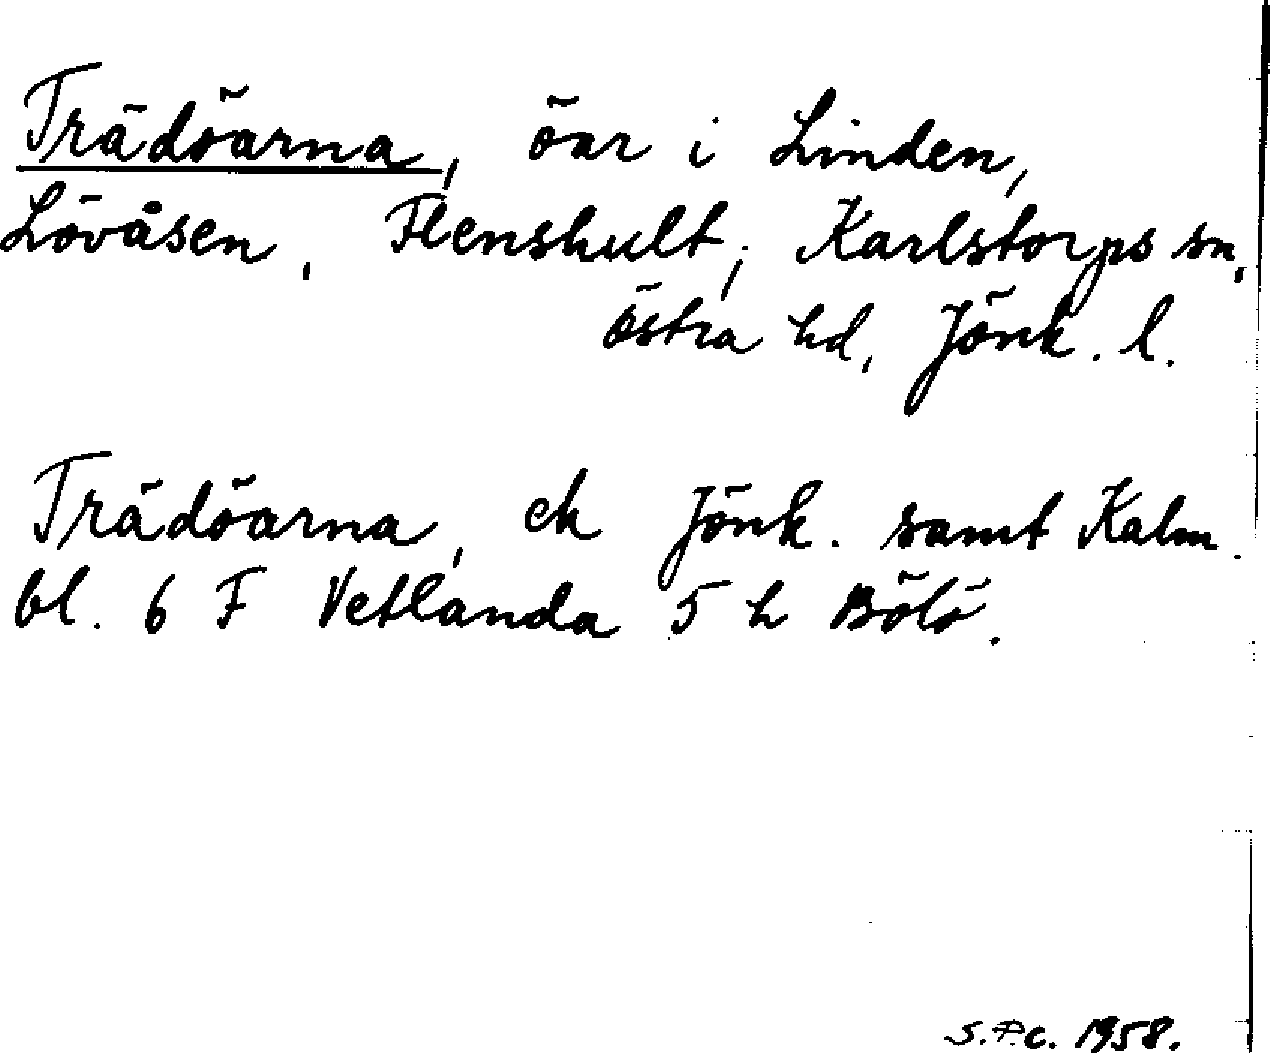 Trädöarna, öar i Linden,
Lövåsen, Flenshult, Karlstorps sn,
östra hd, Jönk. l.
Trädöarna, ek Jönk. samt Kalm.
bl. 6 F Vetlanda 5 h Bölö.
S.P.C. 1958.